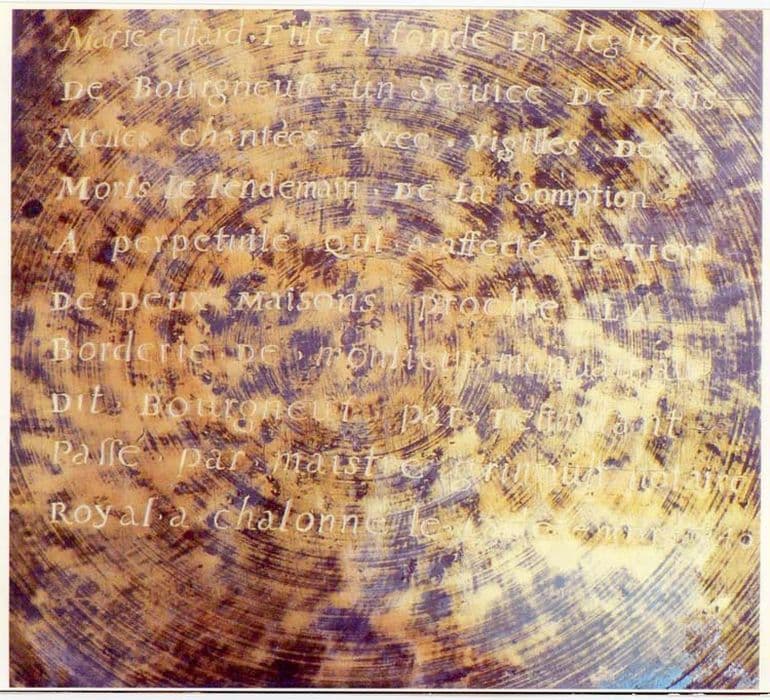 Marie Gillard · Fille · A fondé En leglize
DE Bourgneuf · un Seruice DE Trois
Messes Chantées AVEC · vigilles · DES
Morts le lendemain · DE La Somption
A perpetuité QUI · A affecté LE TIERS
DE · DEUX MAISONS proche LA
Borderie DE · monsieur
DIT · Bourgneuf par
Passe · par · maistre notaire
Royal · a chalonne le